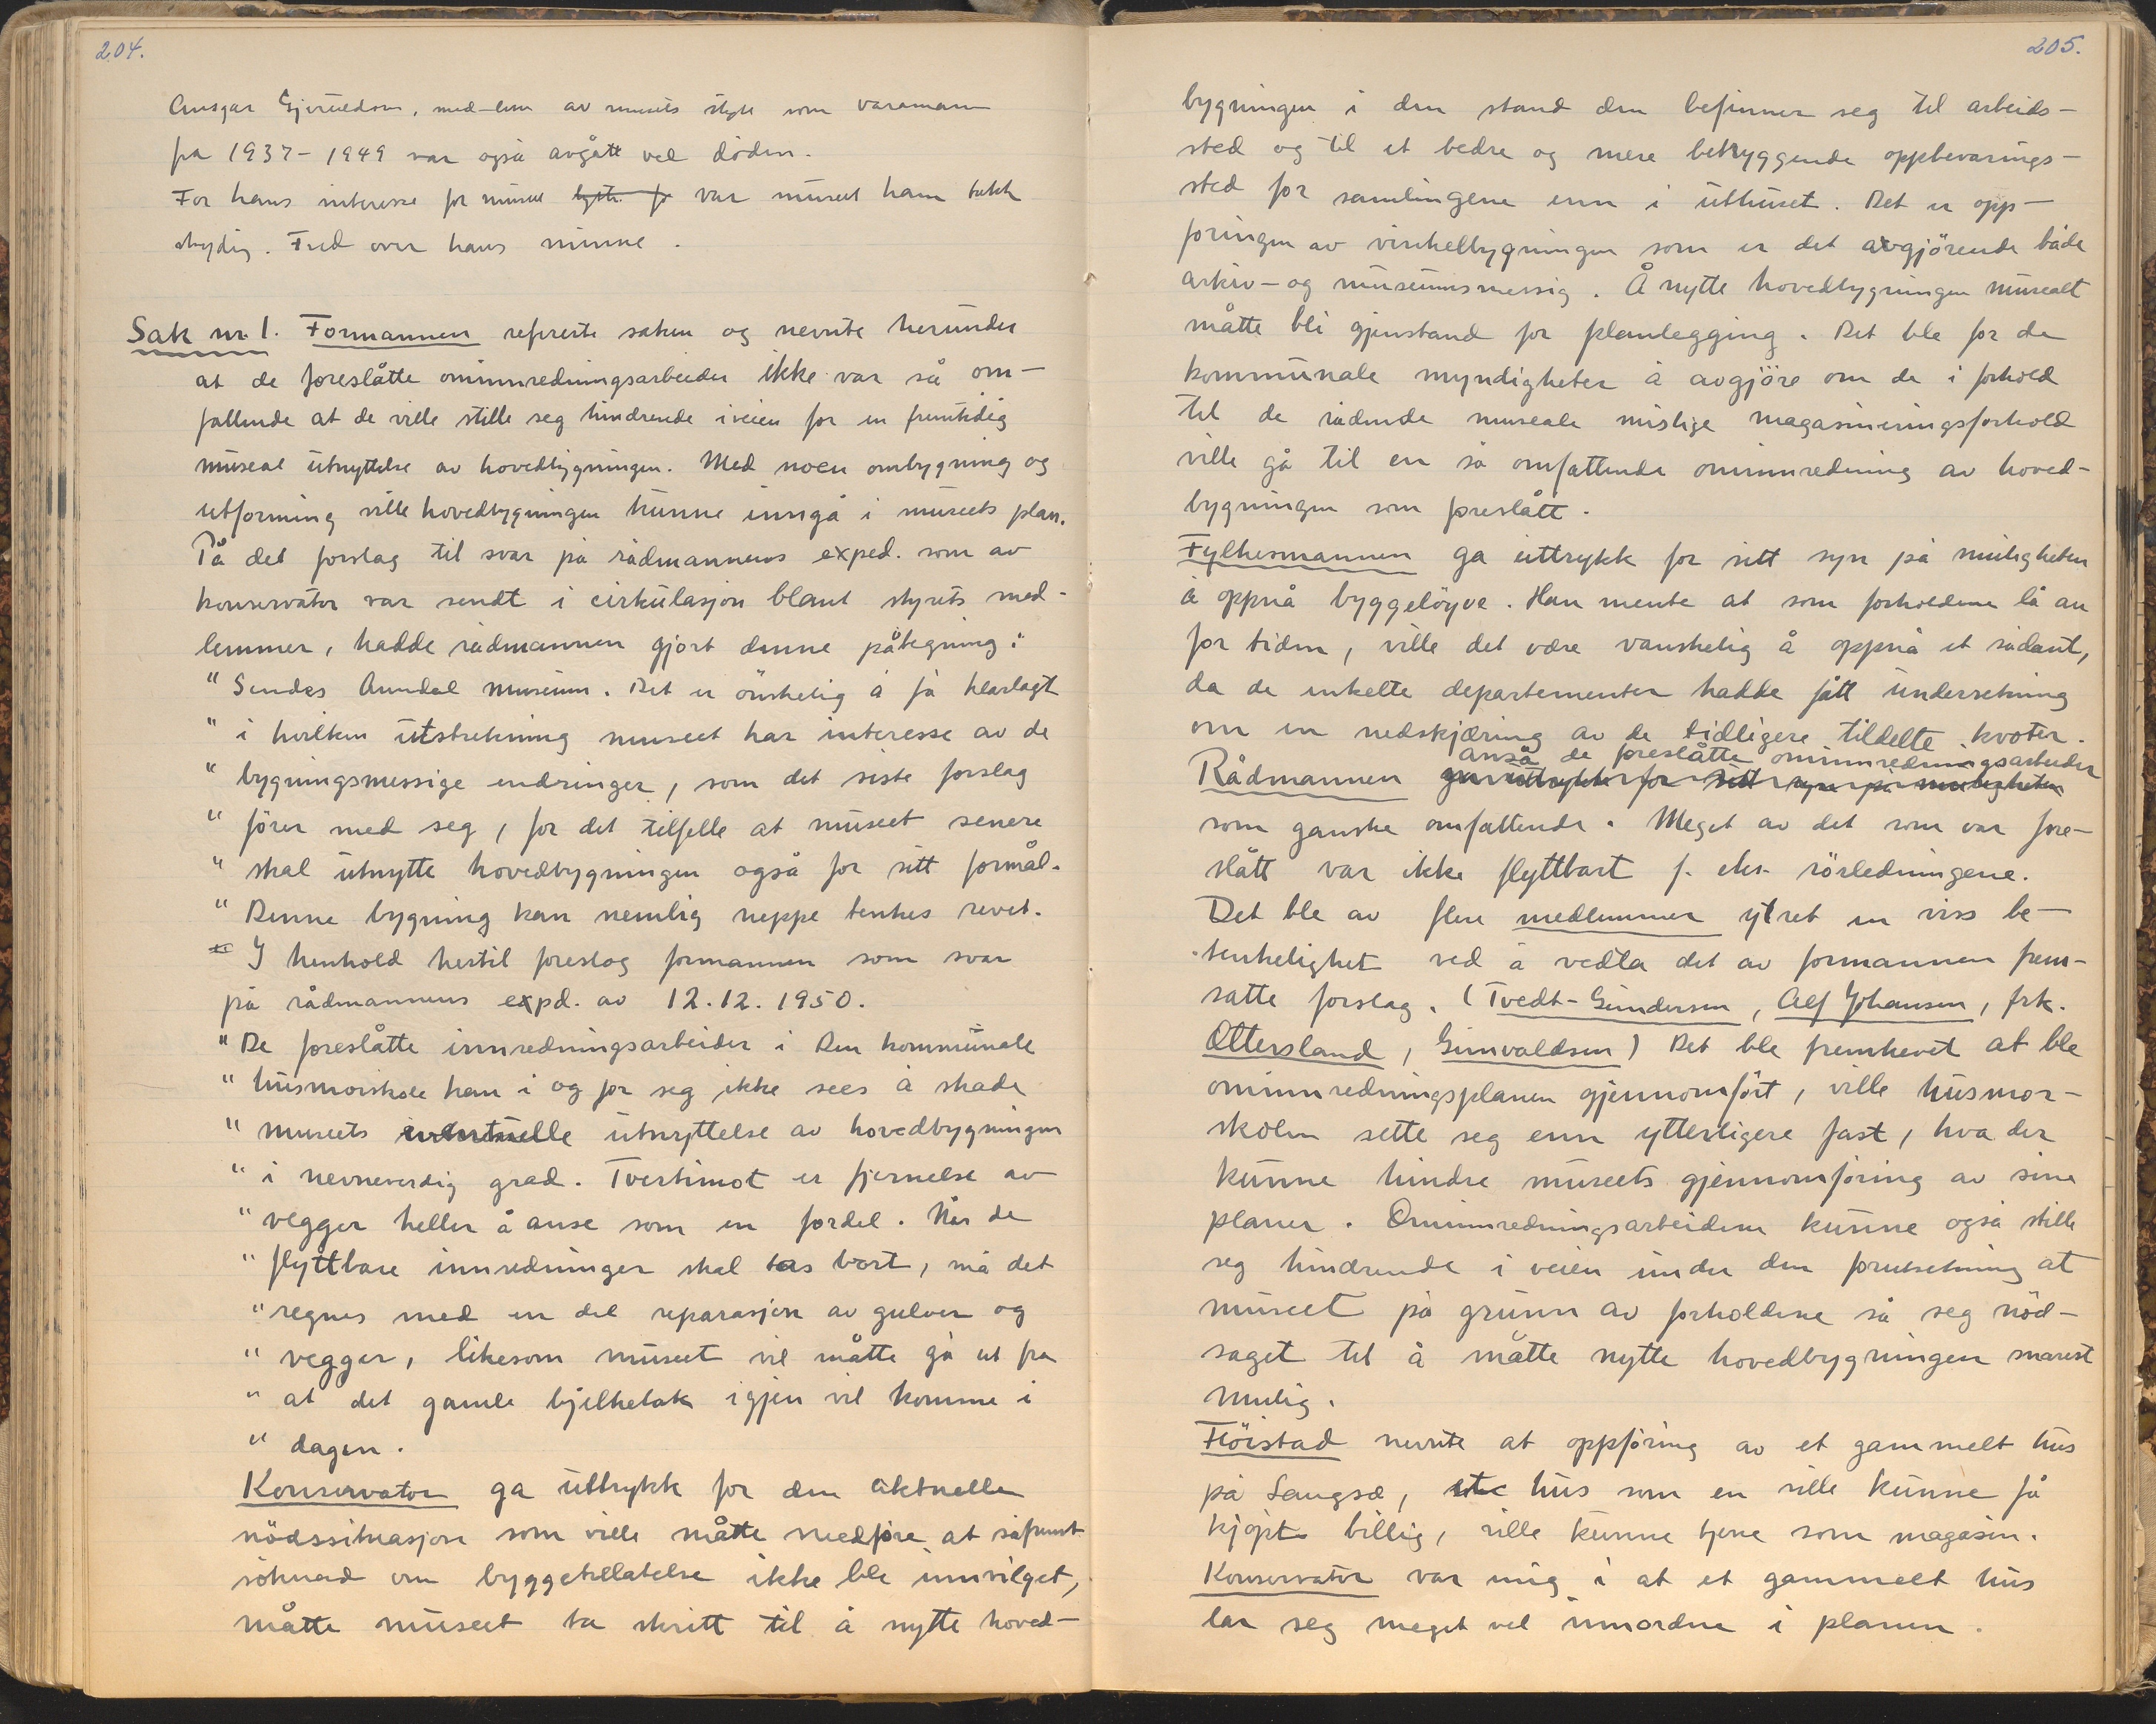 204.
Ansgar Gjerueldsen, med-lem av museets styre som varamann
fra 1937-1949 var også avgått ved döden.
For hans interesse for museet var museet ham takk
skyldig. Fred over hans minne.
Sak nr. 1. Formannen refererte saken og nevnte herunder
at de foreslåtte ominnredningsarbeider ikke var så om-
fattende at de ville stille seg hindrende i veien for en fremtidig
museal utnyttelse av hovedbygningen. Med noen ombygning og
utforming ville hovedbygningen kunne inngå i museets plan.
På det forslag til svar på rådmannens exped. som av
konservator var sendt i cirkulasjon blant styrets med-
lemmer, hadde rådmannen gjort denne påtegning:
" Sendes Arendal museum. Det er önskelig å få klarlagt
" i hvilken utstrekning museet har interesse av de
" bygningsmessige endringer, som det siste forslag
" förer med seg, for det tilfelle at museet senere
" skal utnytte hovedbygningen også for sitt formål.
" Denne bygning kan nemlig neppe tenkes revet.
I henhold hertil foreslog formannen som svar
på rådmannens expd. av 12.12.1950.
" De foreslåtte innredningsarbeider i Den kommunale
" husmorskole kan i og for seg ikke sees å skade
" museets eventuelle utnyttelse av hovedbygningen
" i nevneverdig grad. Tvertimot er fjernelse av
" vegger heller å anse som en fordel. Når de
" flyttbare innredninger skal tas bort, må det
" regnes med en del reparasjon av gulver og
" vegger, likesom museet vil måtte gå ut fra
" at det gamle bjelketak igjen vil komme i
" dagen.
Konservator ga uttrykk for den aktuelle
nödssituasjon som ville måtte medföre at såfremt
söknad om byggetillatelse ikke ble innvilget,
måtte museet ta skritt til å nytte hoved-
205.
bygningen i den stand den befinner seg til arbeids-
sted og til et bedre og mere betryggende oppbevarings-
sted for samlingene enn i uthuset. Det er opp-
föringen av vinkelbygningen som er det avgjörende både
arkiv- og museumsmessig. Å nytte hovedbygningen musealt
måtte bli gjenstand for planlegging. Det ble for de
kommunale myndigheter å avgjöre om de i forhold
til de rådende museale mislige magasineringsforhold
ville gå til en så omfattende ominnredning av hoved-
bygningen som foreslått.
Fylkesmannen ga uttrykk for sitt syn på muligheten
å oppnå byggelöyve. Han mente at som forholdene lå an
for tiden, ville det være vanskelig å oppnå et sådant,
da de enkelte departementer hadde fått undersetning
om en nedskjæring av de tidligere tildelte kvoter.
anså de foreslåtte ominnredningsarbeider
Rådmannen ga uttrykk for sitt syn på muligheten
som ganske omfattende. Meget av det som var fore-
slått var ikke flyttbart f. eks. rörledningene.
Det ble av flere medlemmer ytret en viss be-
tenkelighet ved å vedta det av formannen frem-
satte forslag. (Tvedt-Gundersen, Alf Johansen, frk.
Ottersland, Gunvaldsen) Det ble fremhevet at ble
ominnredningsplanen gjennomfört, ville husmor-
skolen sette seg enn ytterligere fast, hva der
kunne hindre museets gjennomföring av sine
planer. Ominnredningsarbeidene kunne også stille
seg hindrende i veien under den forutsetning at
museet på grunn av forholdene så seg nöd-
saget til å måtte nytte hovedbygningen snarest
mulig.
Flöistad nevnte at oppföring av et gammelt hus
på Langsæ, et hus som en ville kunne få
kjöpt billig, ville kunne tjene som magasin.
Konservator var enig i at et gammelt hus
lar seg meget vel innordne i planen.